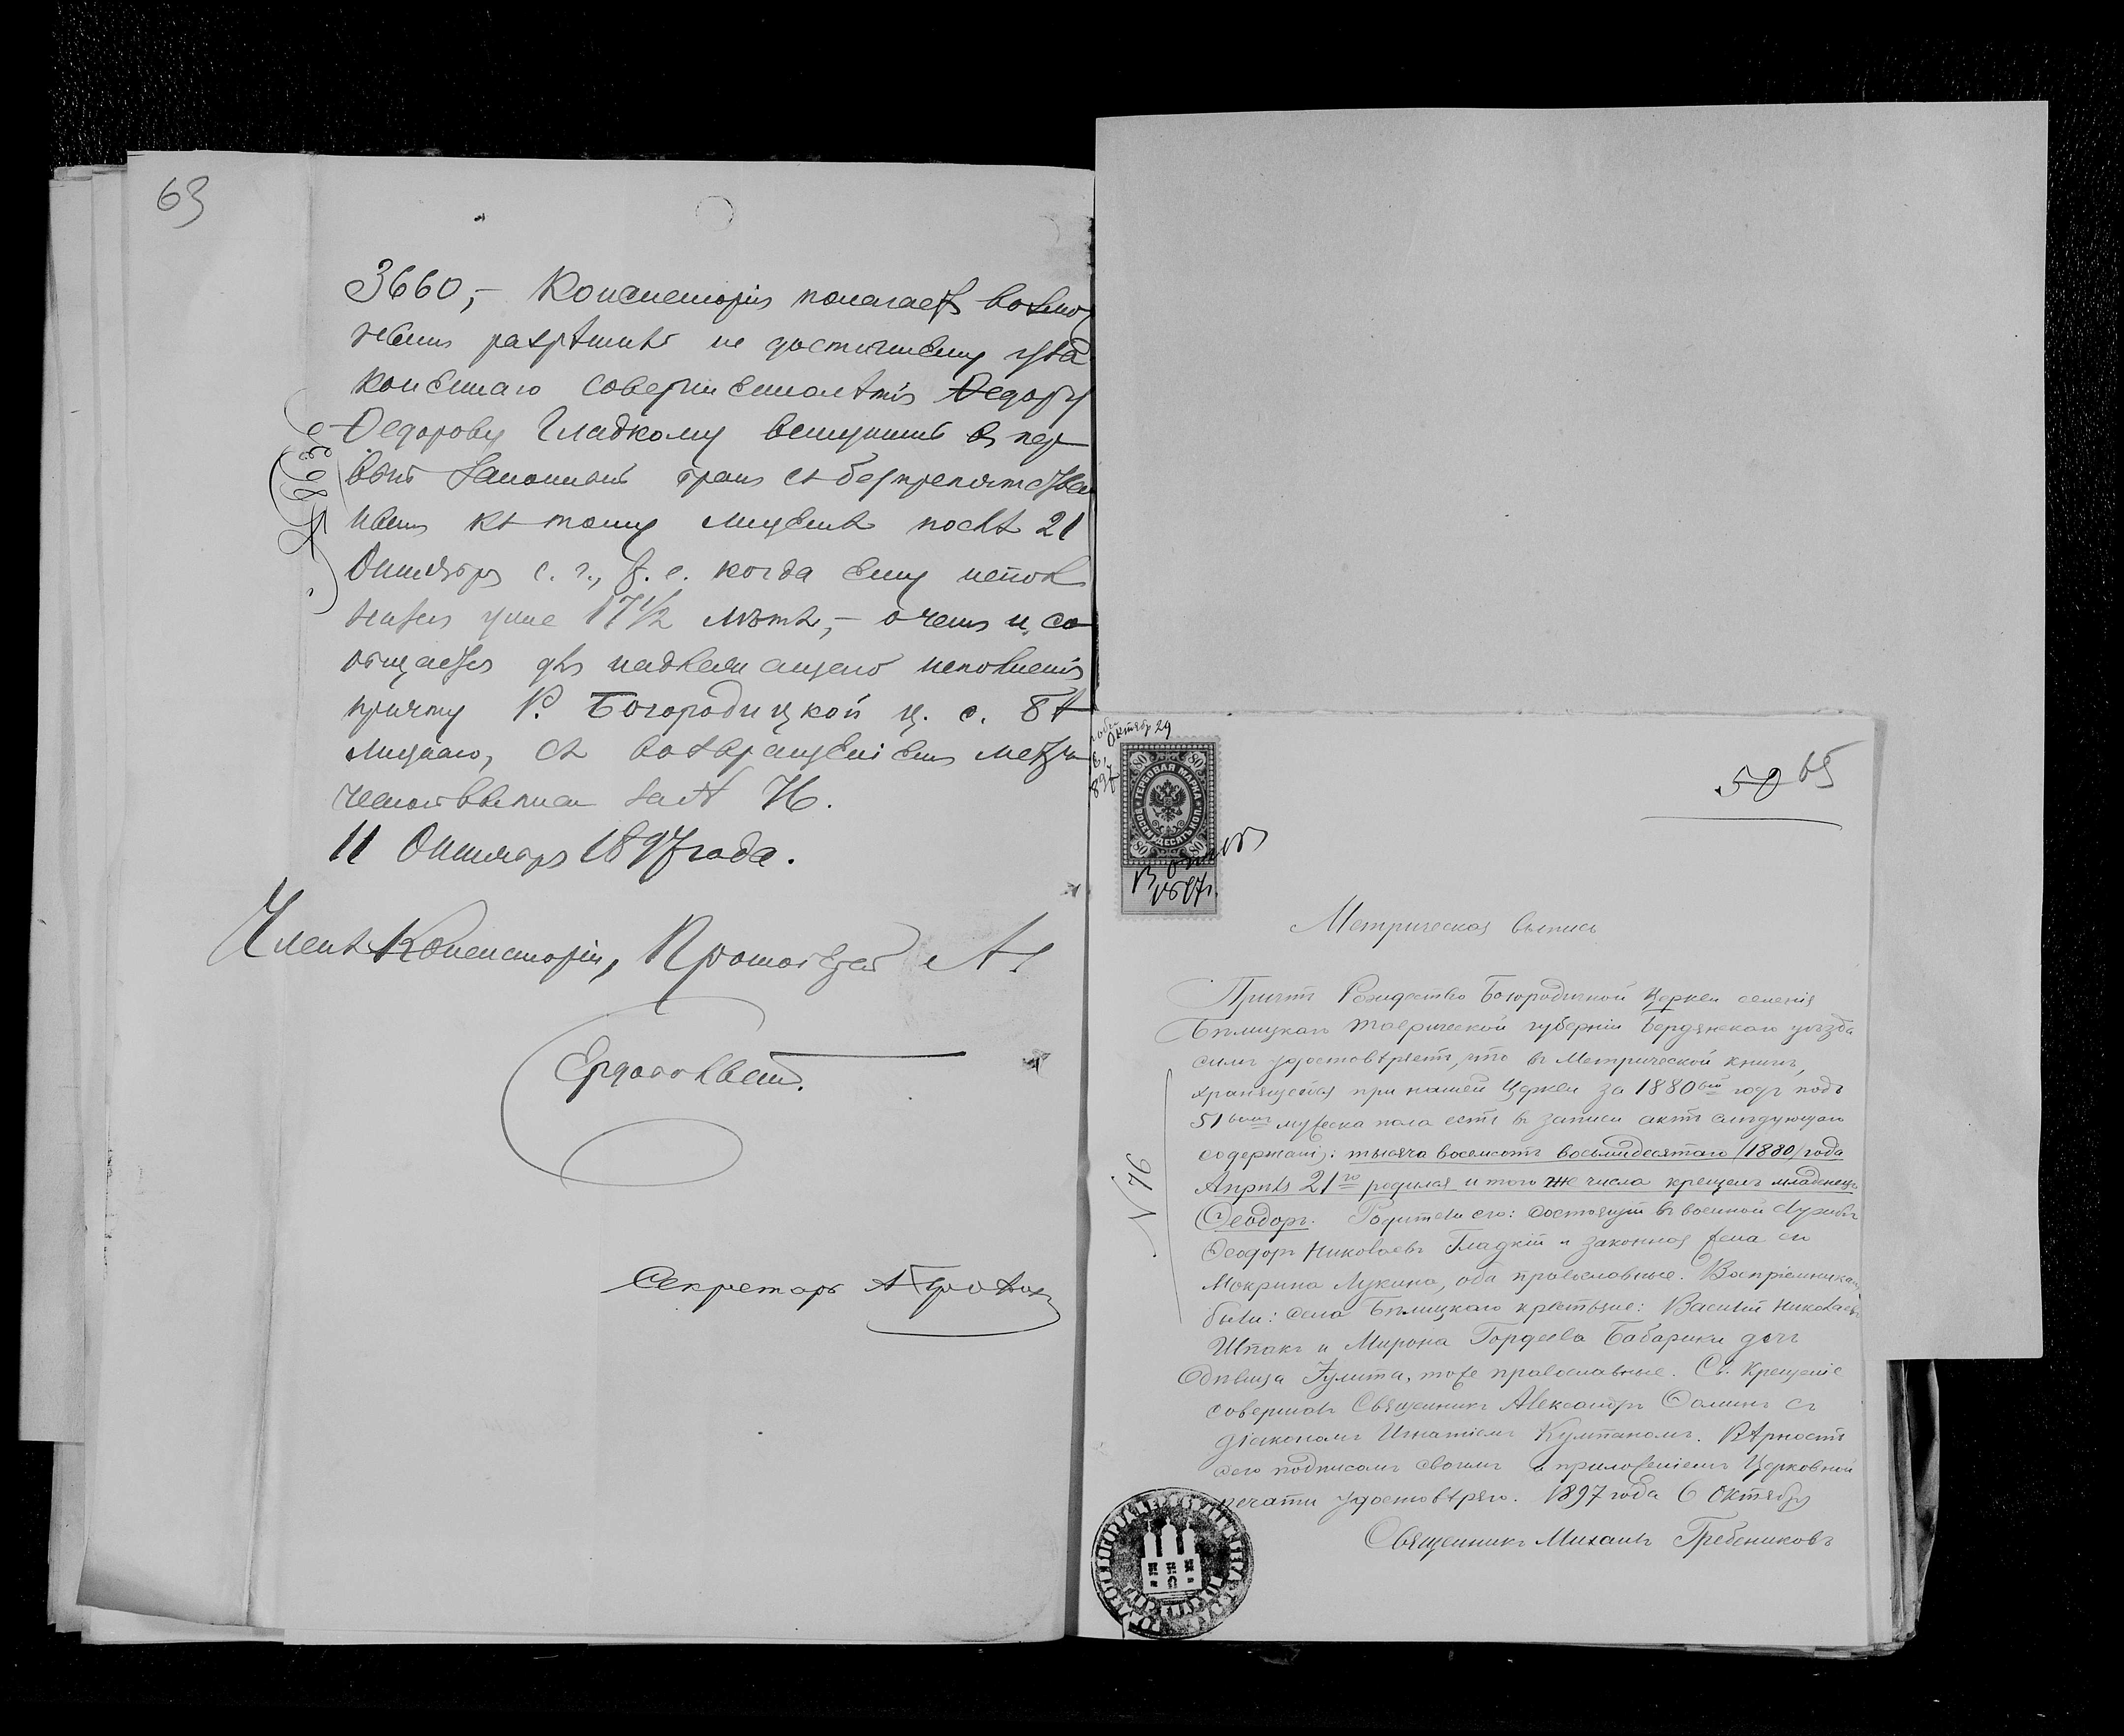 63
3660,- Консисторія полагаетъ возмо
жнымъ разрѣшить не достигшему гра
жданскаго совершеннолѣтія Ѳедору
Ѳедорову Гладкому вступить въ пер
вый законный бракъ съ безпрепятствен
нымъ къ тому лицемъ послѣ 21
Октября с. г., т. е. когда ему испол
нится уже 17 1/2 лѣтъ,- о чемъ и со
общается для надлежащаго исполненія
причту Р. Богородицкой ц. с. Бѣ
лицкаго, съ возвращеніемъ метри
ческой выписи за № 76.
11 Октября 1897 года.
Членъ Консисторіи, Протоіерей
Секретарь
Октября 29
80 80
ГЕРБОВАЯ МАРКА
ВОСЕМЬДЕСЯТЪ КОП.
80 80
1897г.
50 65
Метрическая выпись
Причтъ Рождество Богородичной Церкви селенія
Бѣлицкаго Таврической губерніи Бердянскаго уѣзда
симъ удостовѣряетъ, что въ Метрической книгѣ,
хранящейся при нашей Церкви за 1880ый годъ подъ
51 вымъ мужеска пола есть въ записи актъ слѣдующаго
содержанія: тысяча восемсотъ восьмидесятаго /1880/ года
Апрѣля 21го родился и того же числа крещенъ младенецъ
Ѳеодоръ. Родители его: состоящій въ военной службѣ
Ѳеодоръ Николаевъ Гладкій и законная жена его
Мокрина Лукина, оба православные. Воспріемниками
были: села Бѣлицкаго крестьяне: Василій Николаевъ
Шпакъ и Мирона Гордѣева Бабарики дочь
дѣвица Іулита, тоже православные. Св. Крещеніе
совершалъ Священникъ Александръ Ѳоминъ съ
діакономъ Игнатіемъ Култаномъ. Вѣрность
сего подписомъ своимъ и приложеніемъ Церковной
печати удостовѣряю. 1897 года 6 Октября
Священникъ Михаилъ Гребениковъ
№ 76